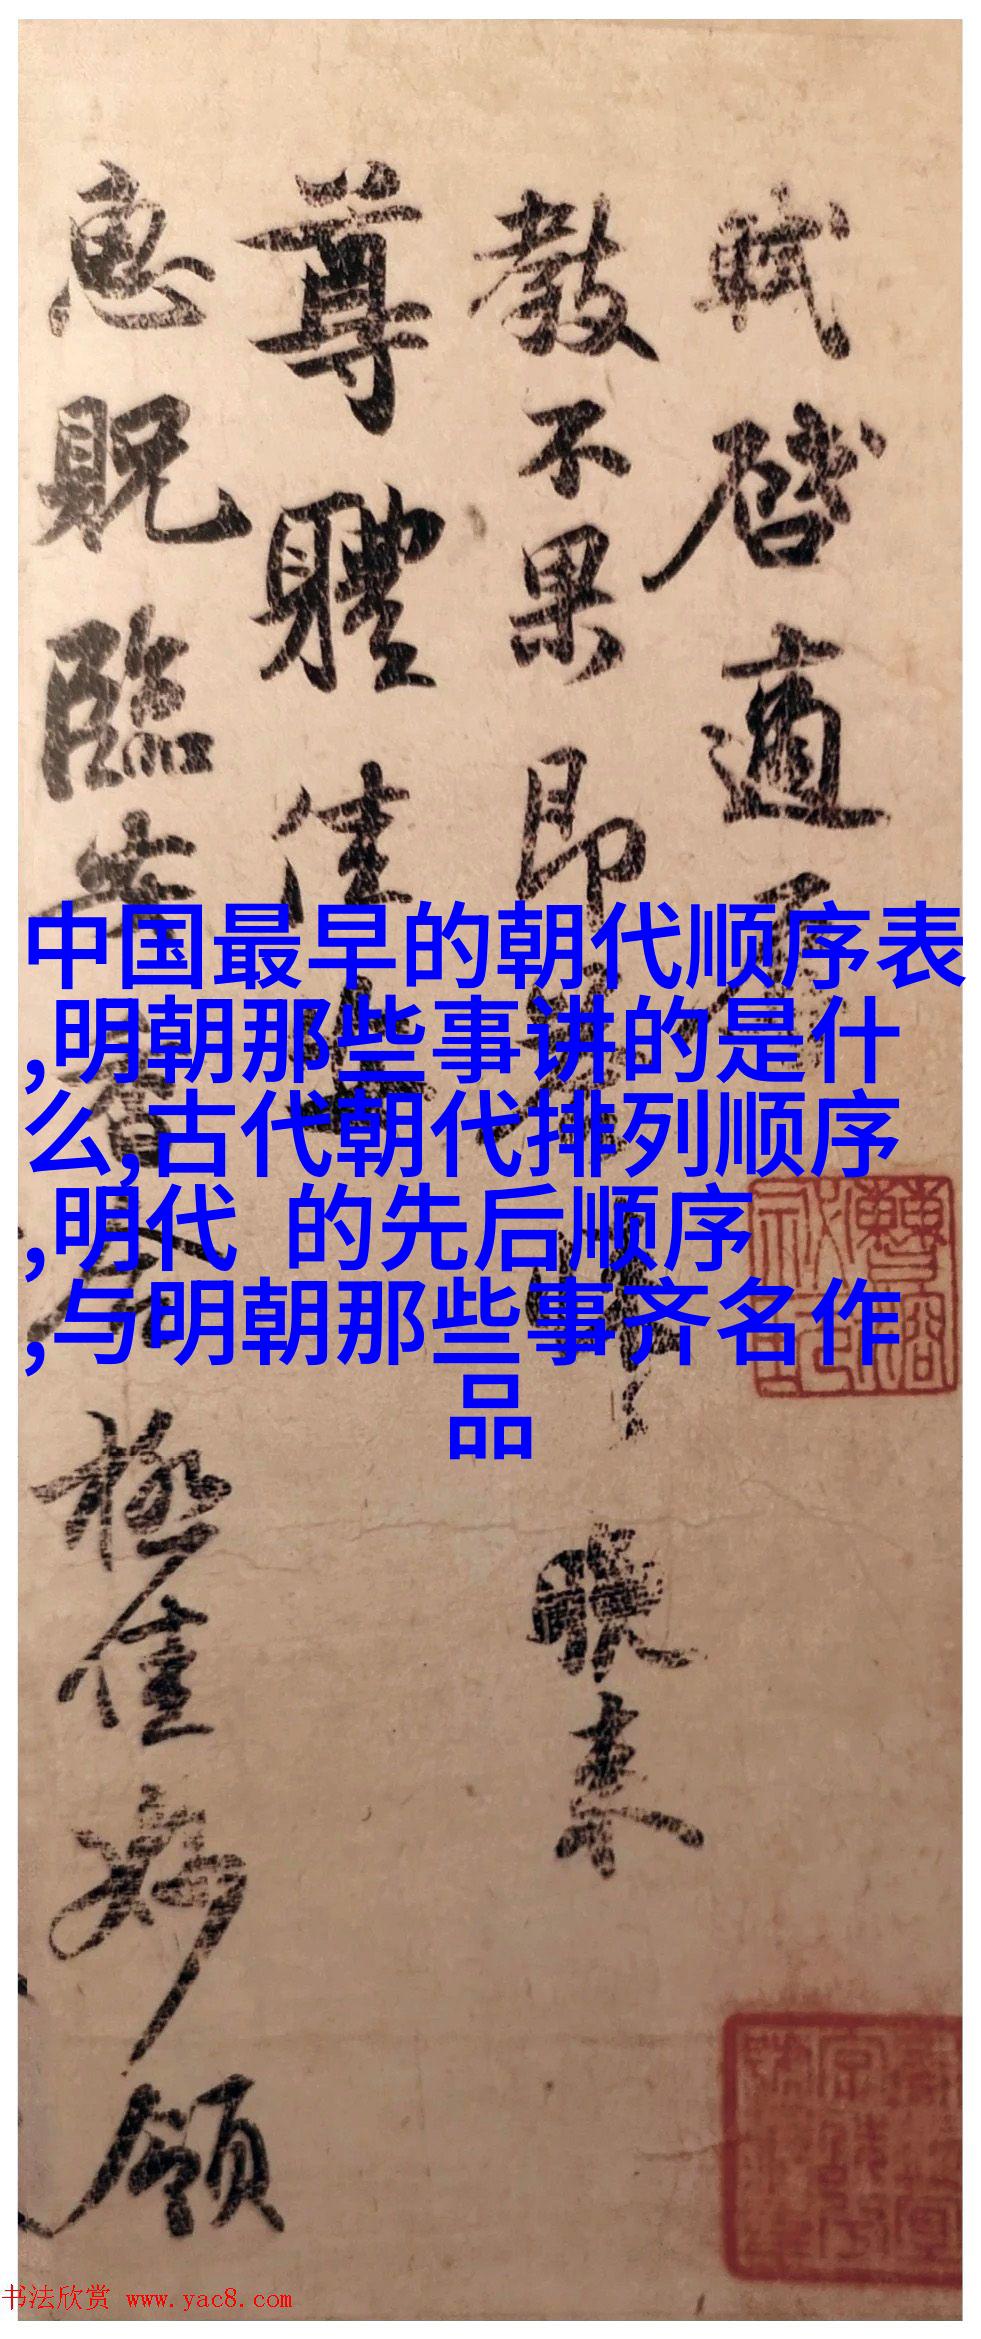 軾啓適辱
教不果即 晚来
尊體佳安
惠貺臨安香合極佳妙領
中国最早的朝代顺序表
,明朝那些事讲的是什
么,古代朝代排列顺序
,明代 的先后顺序
,与明朝那些事齐名作
品
书法欣赏 www.yac8.com